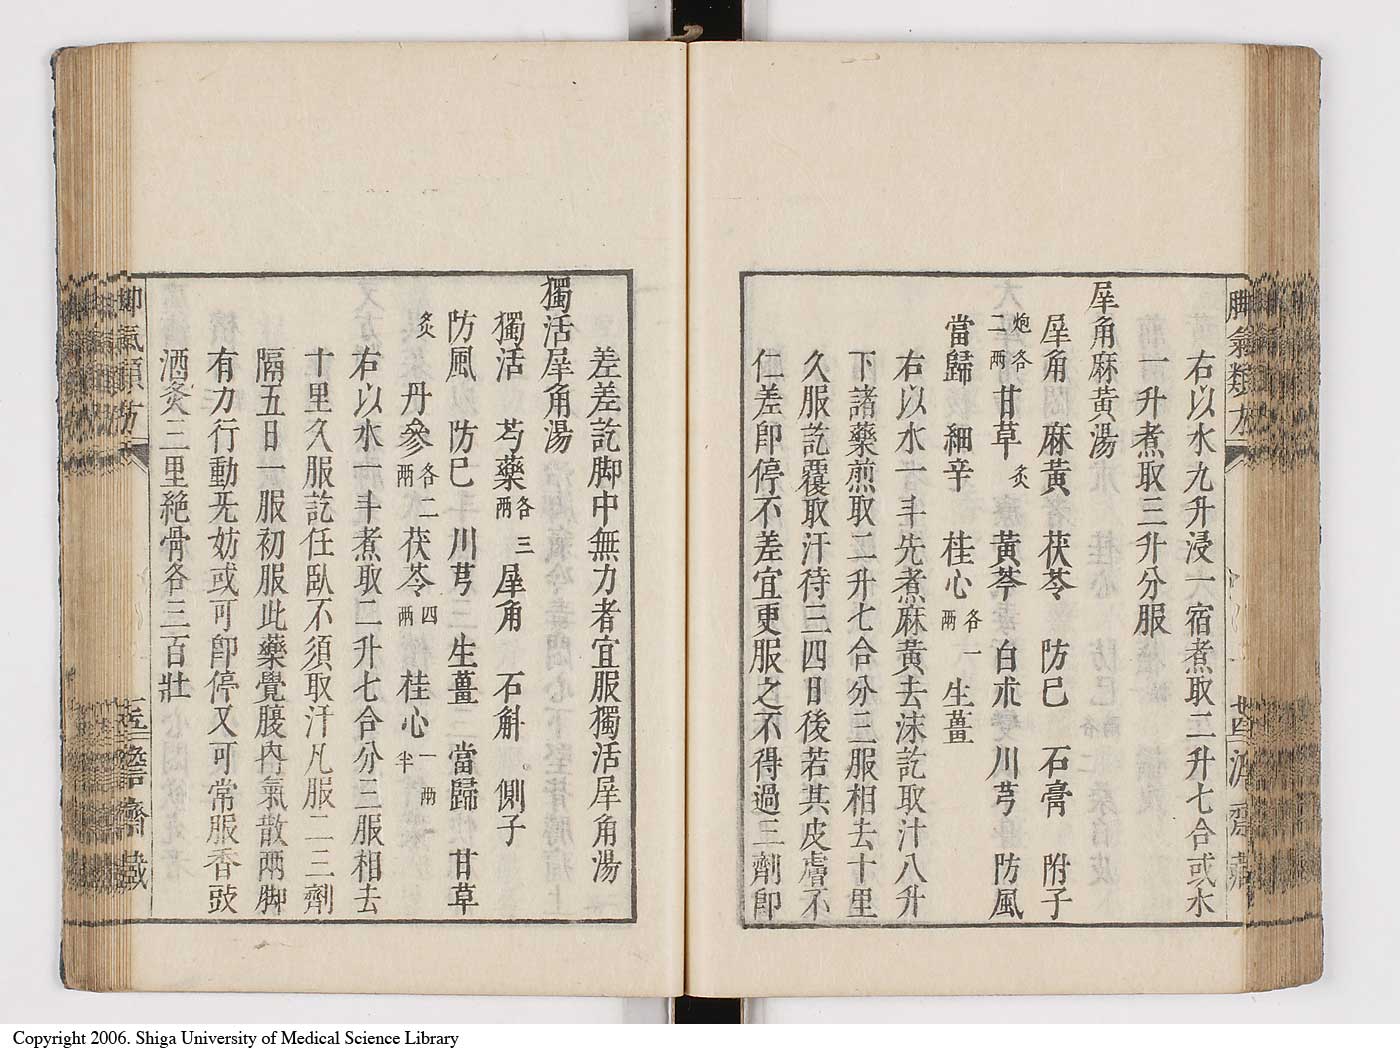 脚氣類方
右以水九升浸一宿煮取二升七合或水
一升煮取三升分服
犀角麻黃湯
犀角 麻黃 茯苓 防已 石膏 附子
炮各二兩 甘草 炙 黃芩 白朮 川芎 防風
當歸 細辛 桂心 各一兩 生薑
右以水一斗先煮麻黃去沫訖取汁八升
下諸藥煎取二升七合分三服相去十里
久服訖覆取汗待三四日後若其皮膚不
仁差卽停不差宜更服之不得過三劑卽
差差訖脚中無力者宜服獨活犀角湯
獨活犀角湯
獨活 芍藥 各三兩 犀角 石斛 側子
防風 防已 川芎 生薑 當歸 甘草
炙 丹參 各二兩 茯苓 四兩 桂心 一兩半
右以水一斗煮取二升七合分三服相去
十里久服訖任臥不須取汗凡服二三劑
隔五日一服初服此藥覺腹內氣散兩脚
有力行動无妨或可卽停又可常服香豉
酒灸三里絶骨各三百壯
脚氣類方
齋藏
Copyright 2006. Shiga University of Medical Science Library